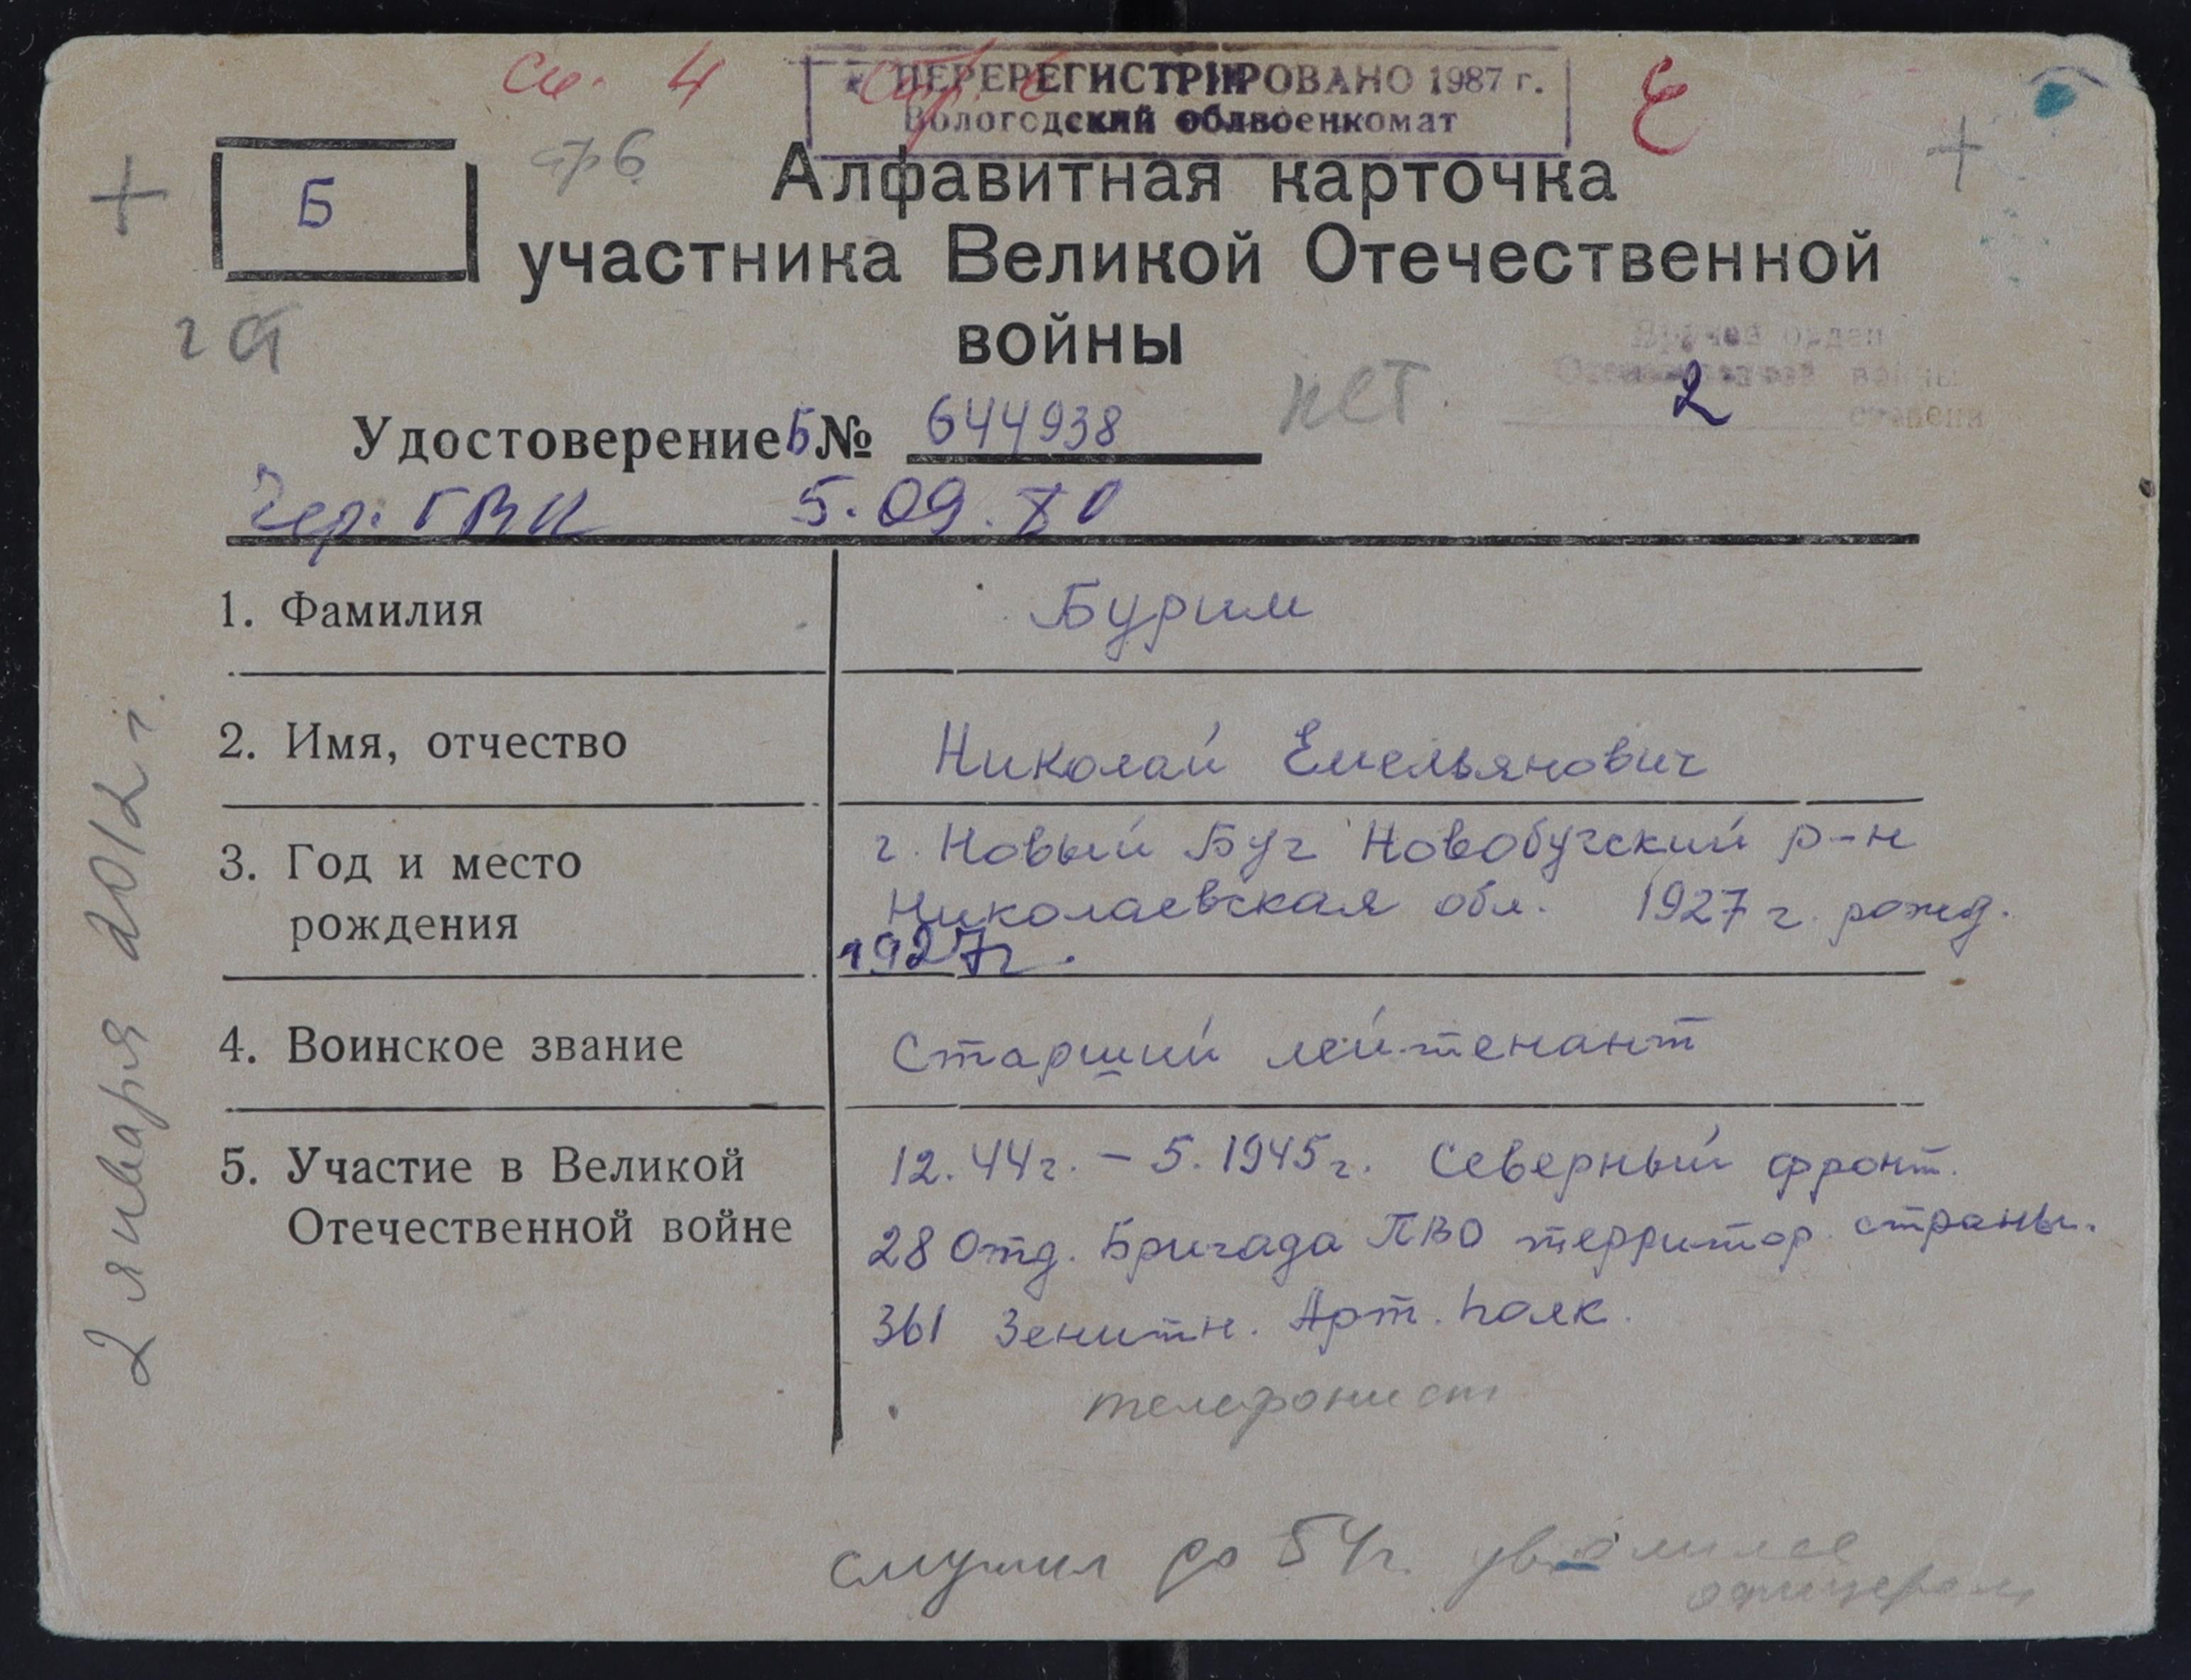 си. 4 стр. 6
ПЕРЕРЕГИСТРИРОВАНО 1987 г.
Вологодский облвоенкомат
Б
стр 6
Алфавитная карточка
участника Великой Отечественной
войны
Вручен орден
Отечественной войны
2 степени
нет
Удостоверение Б № 644938
Чер. ГВК 5.09.80
1. Фамилия Бурим
2. Имя, отчество Николай Емельянович
3. Год и место рождения г. Новый Буг Новобугский р-н
Николаевская обл. 1927 г. рожд.
1927г.
4. Воинское звание Старший лейтенант
5. Участие в Великой Отечественной войне 12.44г. - 5.1945г. Северный фронт.
28 Отд. Бригада ПВО территор. страны.
361 Зенитн. Арт. полк.
телефонист
служил до 54г. уволился
офицером
2 января 2012 г.